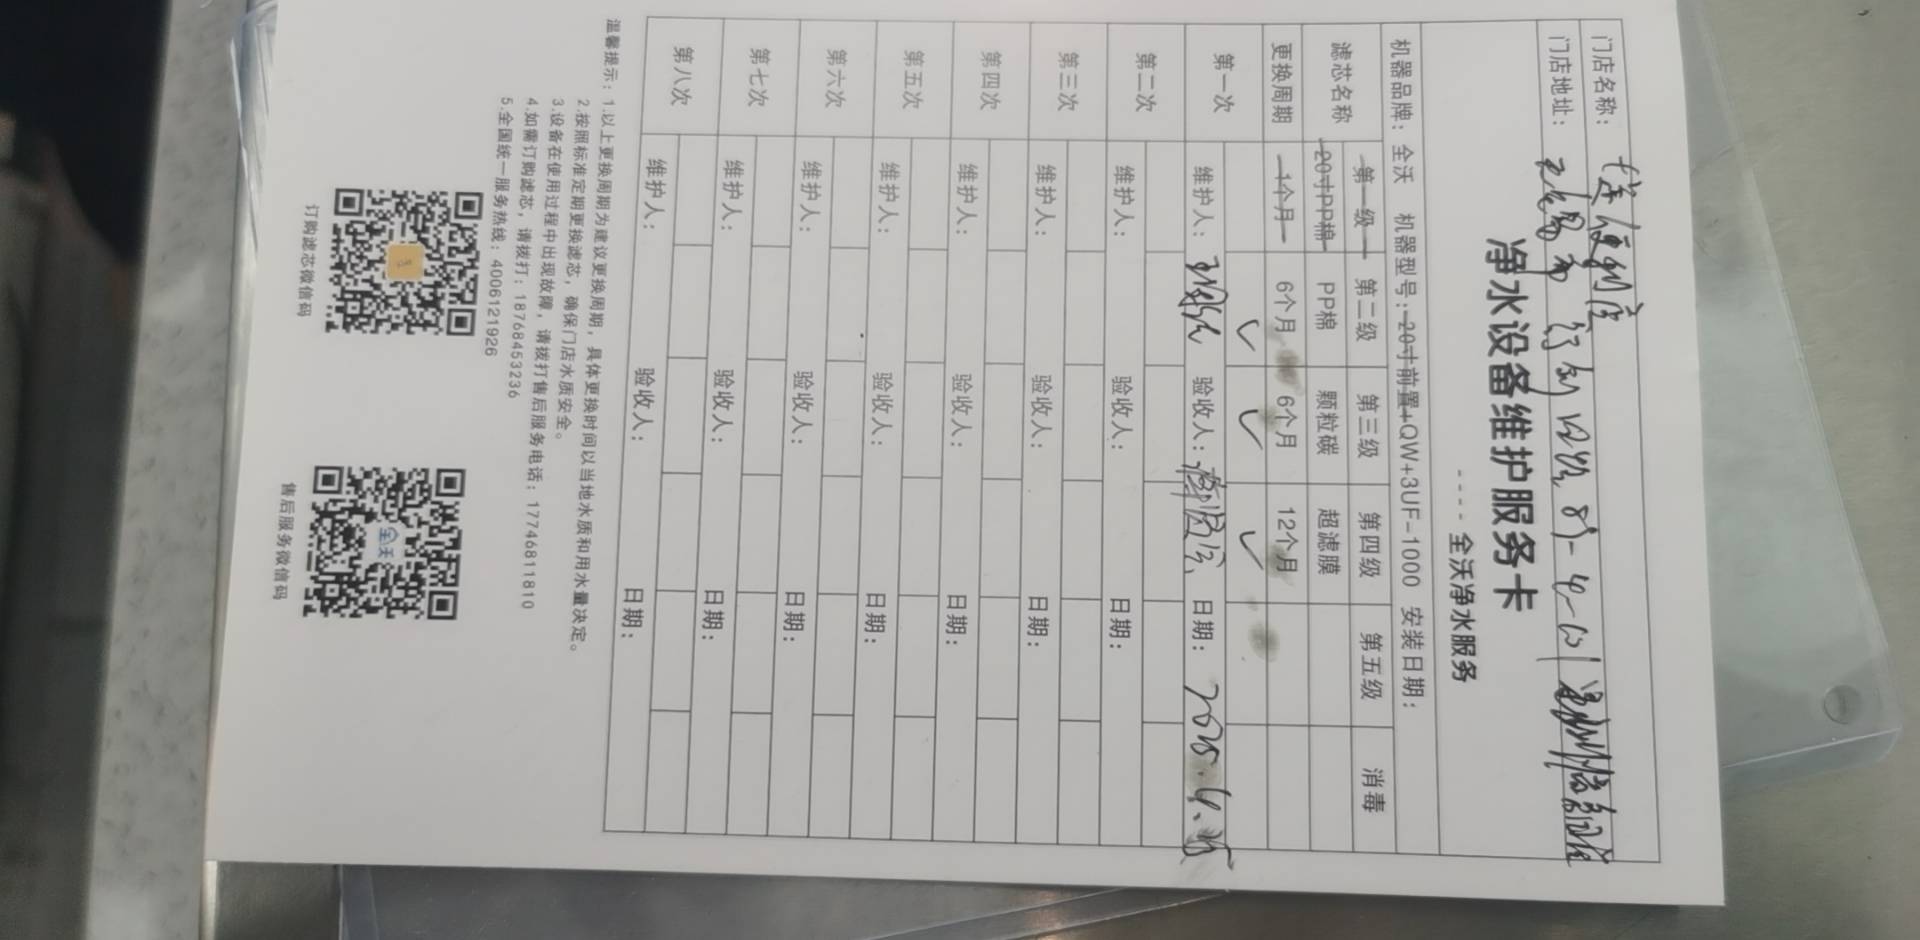 净水设备维护服务卡
---- 全沃净水服务
门店名称：
门店地址：
机器品牌：全沃 机器型号：20寸前置+QW+3UF-1000 安装日期：
滤芯名称 第一级 第二级 第三级 第四级 第五级 消毒
20寸PP棉 PP棉 颗粒碳 超滤膜
更换周期 1个月 6个月 6个月 12个月
第一次 ✓ ✓ ✓
维护人： 验收人： 日期：
第二次
维护人： 验收人： 日期：
第三次
维护人： 验收人： 日期：
第四次
维护人： 验收人： 日期：
第五次
维护人： 验收人： 日期：
第六次
维护人： 验收人： 日期：
第七次
维护人： 验收人： 日期：
第八次
维护人： 验收人： 日期：
温馨提示：1.以上更换周期为建议更换周期，具体更换时间以当地水质和用水量决定。
2.按照标准定期更换滤芯，确保门店水质安全。
3.设备在使用过程中出现故障，请拨打售后服务电话：17746811810
4.如需订购滤芯，请拨打：18768453236
5.全国统一服务热线：4006121926
订购滤芯微信码 售后服务微信码